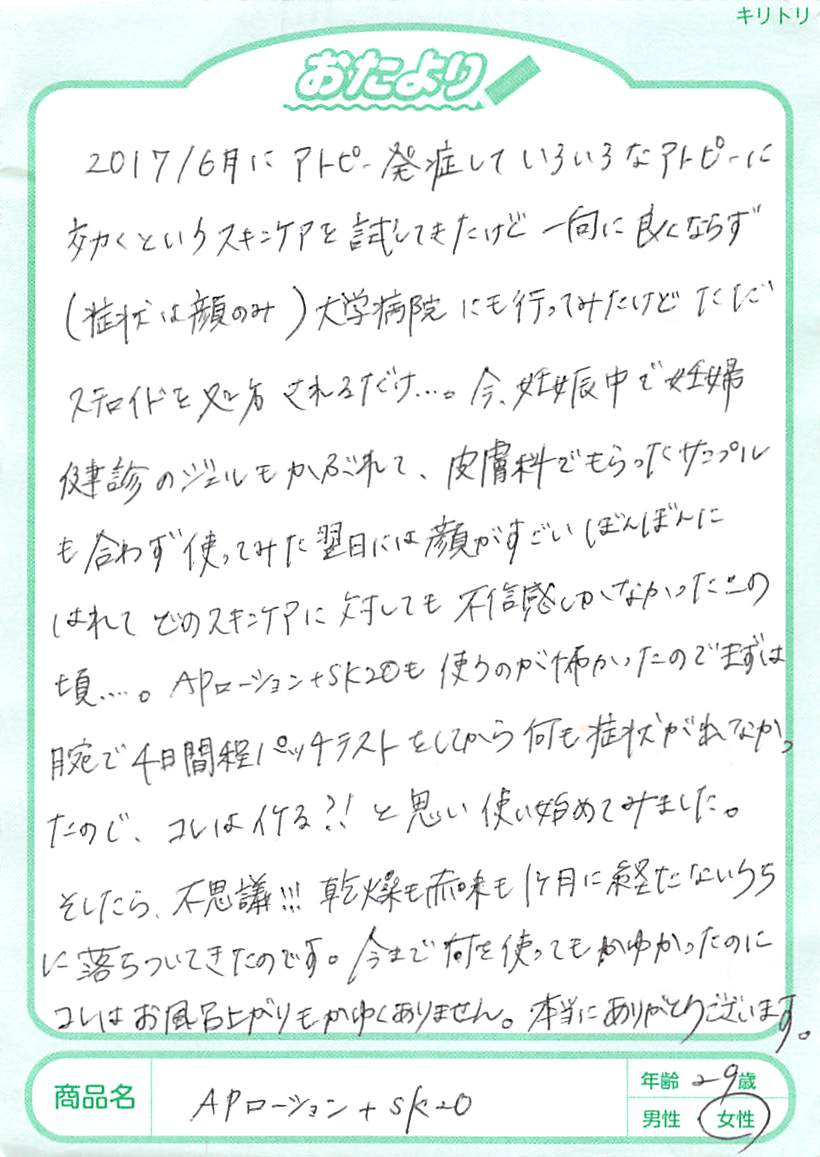 キリトリ
おたより
2017/6月に アトピー発症していろいろなアトピーに
効くというスキンケアを試してきたけど一向に良くならず
(症状は顔のみ)大学病院にも行ってみたけど ただ
ステロイドを処方されるだけ…。今、妊娠中で妊婦
健診のジェルもかぶれて、皮膚科でもらったサンプル
も合わず使ってみた翌日には顔がすごいぼんぼんに
はれてどのスキンケアに対しても不信感しかなかったこの
頃…。APローション+SK20も使うのが怖かったのでまずは
腕で4日間程パッチテストをしてから何も症状がれなかっ
たので、コレはイケる?!と思い使い始めてみました。
そしたら、不思議!!!乾燥も赤味も1ヶ月に経たないうち
に落ちついてきたのです。今まで何を使ってもかゆかったのに
コレはお風呂上がりもかゆくありません。本当にありがとうございます。
商品名 APローション+SK20
年齢 29歳
男性 女性